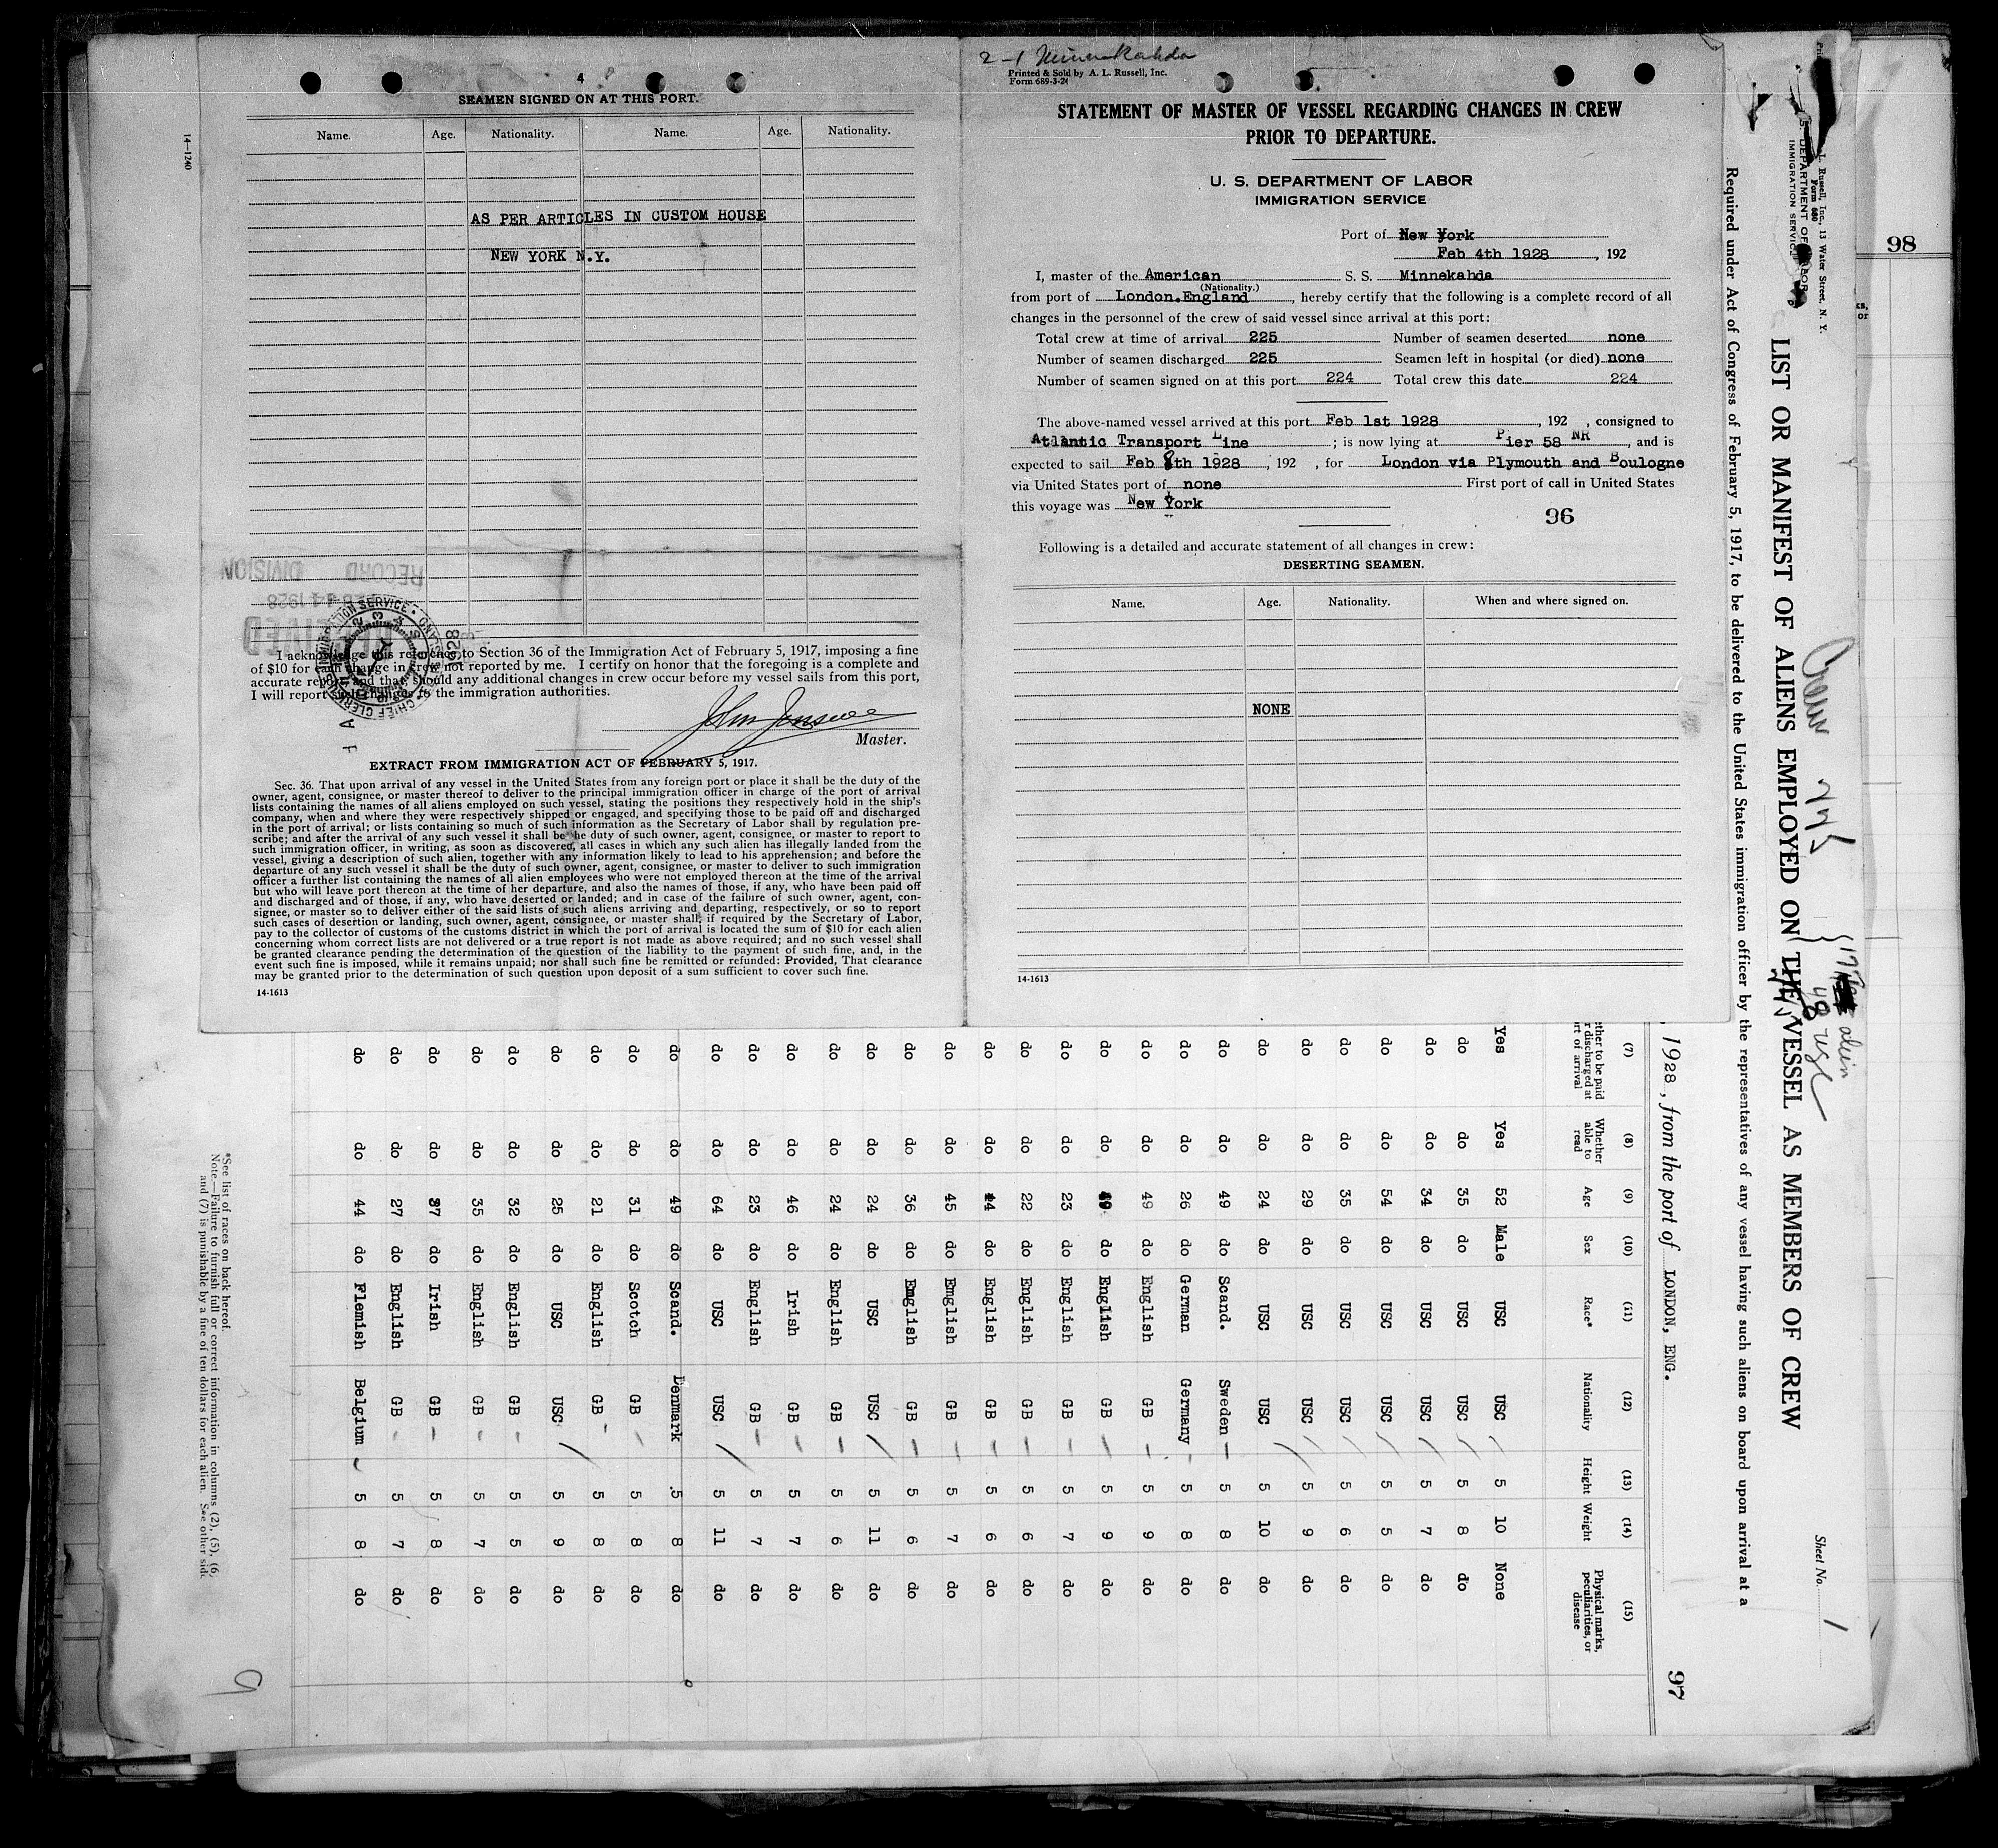 4
SEAMEN SIGNED ON AT THIS PORT.
Name. Age. Nationality. Name. Age. Nationality.
AS PER ARTICLES IN CUSTOM HOUSE
NEW YORK N.Y.
14-1240
RECORD DIVISION
I acknowledge this reference to Section 36 of the Immigration Act of February 5, 1917, imposing a fine
of $10 for each change in crew not reported by me. I certify on honor that the foregoing is a complete and
accurate report, and that should any additional changes in crew occur before my vessel sails from this port,
I will report such changes to the immigration authorities.
Master.
EXTRACT FROM IMMIGRATION ACT OF FEBRUARY 5, 1917.
Sec. 36. That upon arrival of any vessel in the United States from any foreign port or place it shall be the duty of the
owner, agent, consignee, or master thereof to deliver to the principal immigration officer in charge of the port of arrival
lists containing the names of all aliens employed on such vessel, stating the positions they respectively hold in the ship's
company, when and where they were respectively shipped or engaged, and specifying those to be paid off and discharged
in the port of arrival; or lists containing so much of such information as the Secretary of Labor shall by regulation pre-
scribe; and after the arrival of any such vessel it shall be the duty of such owner, agent, consignee, or master to report to
such immigration officer, in writing, as soon as discovered, all cases in which any such alien has illegally landed from the
vessel, giving a description of such alien, together with any information likely to lead to his apprehension; and before the
departure of any such vessel it shall be the duty of such owner, agent, consignee, or master to deliver to such immigration
officer a further list containing the names of all alien employees who were not employed thereon at the time of the arrival
but who will leave port thereon at the time of her departure, and also the names of those, if any, who have been paid off
and discharged and of those, if any, who have deserted or landed; and in case of the failure of such owner, agent, con-
signee, or master so to deliver either of the said lists of such aliens arriving and departing, respectively, or so to report
such cases of desertion or landing, such owner, agent, consignee, or master shall, if required by the Secretary of Labor,
pay to the collector of customs of the customs district in which the port of arrival is located the sum of $10 for each alien
concerning whom correct lists are not delivered or a true report is not made as above required; and no such vessel shall
be granted clearance pending the determination of the question of the liability to the payment of such fine, and, in the
event such fine is imposed, while it remains unpaid; nor shall such fine be remitted or refunded: Provided, That clearance
may be granted prior to the determination of such question upon deposit of a sum sufficient to cover such fine.
14-1613
2-1 Minnekahda
Printed & Sold by A. L. Russell, Inc.
Form 689-3-26
STATEMENT OF MASTER OF VESSEL REGARDING CHANGES IN CREW
PRIOR TO DEPARTURE.
U. S. DEPARTMENT OF LABOR
IMMIGRATION SERVICE
Port of New York
Feb 4th 1928, 192
I, master of the American S. S. Minnekahda
(Nationality.)
from port of London.England, hereby certify that the following is a complete record of all
changes in the personnel of the crew of said vessel since arrival at this port:
Total crew at time of arrival 225 Number of seamen deserted none
Number of seamen discharged 225 Seamen left in hospital (or died) none
Number of seamen signed on at this port 224 Total crew this date 224
The above-named vessel arrived at this port Feb 1st 1928, 192 , consigned to
Atlantic Transport Line ; is now lying at Pier 58 NR, and is
expected to sail Feb 8th 1928, 192 , for London via Plymouth and Boulogne
via United States port of none First port of call in United States
this voyage was New York
96
Following is a detailed and accurate statement of all changes in crew:
DESERTING SEAMEN.
Name. Age. Nationality. When and where signed on.
NONE
14-1613
98
L. Russell, Inc., 13 Water Street, N. Y.
Form 680
S. DEPARTMENT OF LABOR
IMMIGRATION SERVICE
Sheet No. 1
LIST OR MANIFEST OF ALIENS EMPLOYED ON THE VESSEL AS MEMBERS OF CREW
Required under Act of Congress of February 5, 1917, to be delivered to the United States immigration officer by the representatives of any vessel having such aliens on board upon arrival at a
, 1928, from the port of LONDON, ENG.
97
(7) (8) (9) (10) (11) (12) (13) (14) (15)
ther to be paid r discharged at rt of arrival Whether able to read Age Sex Race* Nationality Height Weight Physical marks, peculiarities, or disease
Yes Yes 52 Male USC USC 5 10 None
do do 35 do USC USC 5 8 do
do do 34 do USC USC 5 7 do
do do 54 do USC USC 5 5 do
do do 35 do USC USC 5 6 do
do do 29 do USC USC 5 9 do
do do 24 do USC USC 5 10 do
do do 49 do Scand. Sweden 5 8 do
do do 26 do German Germany 5 8 do
do do 49 do English GB 5 9 do
do do do English GB 5 9 do
do do 23 do English GB 5 7 do
do do 22 do English GB 5 6 do
do do do English GB 5 6 do
do do 45 do English GB 5 7 do
do do 36 do English GB 5 6 do
do do 24 do USC USC 5 11 do
do do 24 do English GB 5 6 do
do do 46 do Irish GB 5 7 do
do do 23 do English GB 5 7 do
do do 64 do USC USC 5 11 do
do do 49 do Scand. Denmark 5 8 do
do do 31 do Scotch GB 5 8 do
do do 21 do English GB 5 8 do
do do 25 do USC USC 5 9 do
do do 32 do English GB 5 5 do
do do 35 do English GB 5 7 do
do do 37 do Irish GB 5 8 do
do do 27 do English GB 5 7 do
do do 44 do Flemish Belgium 5 8 do
*See list of races on back hereof.
Note.—Failure to furnish full or correct information in columns (2), (5), (6,
and (7) is punishable by a fine of ten dollars for each alien. See other side